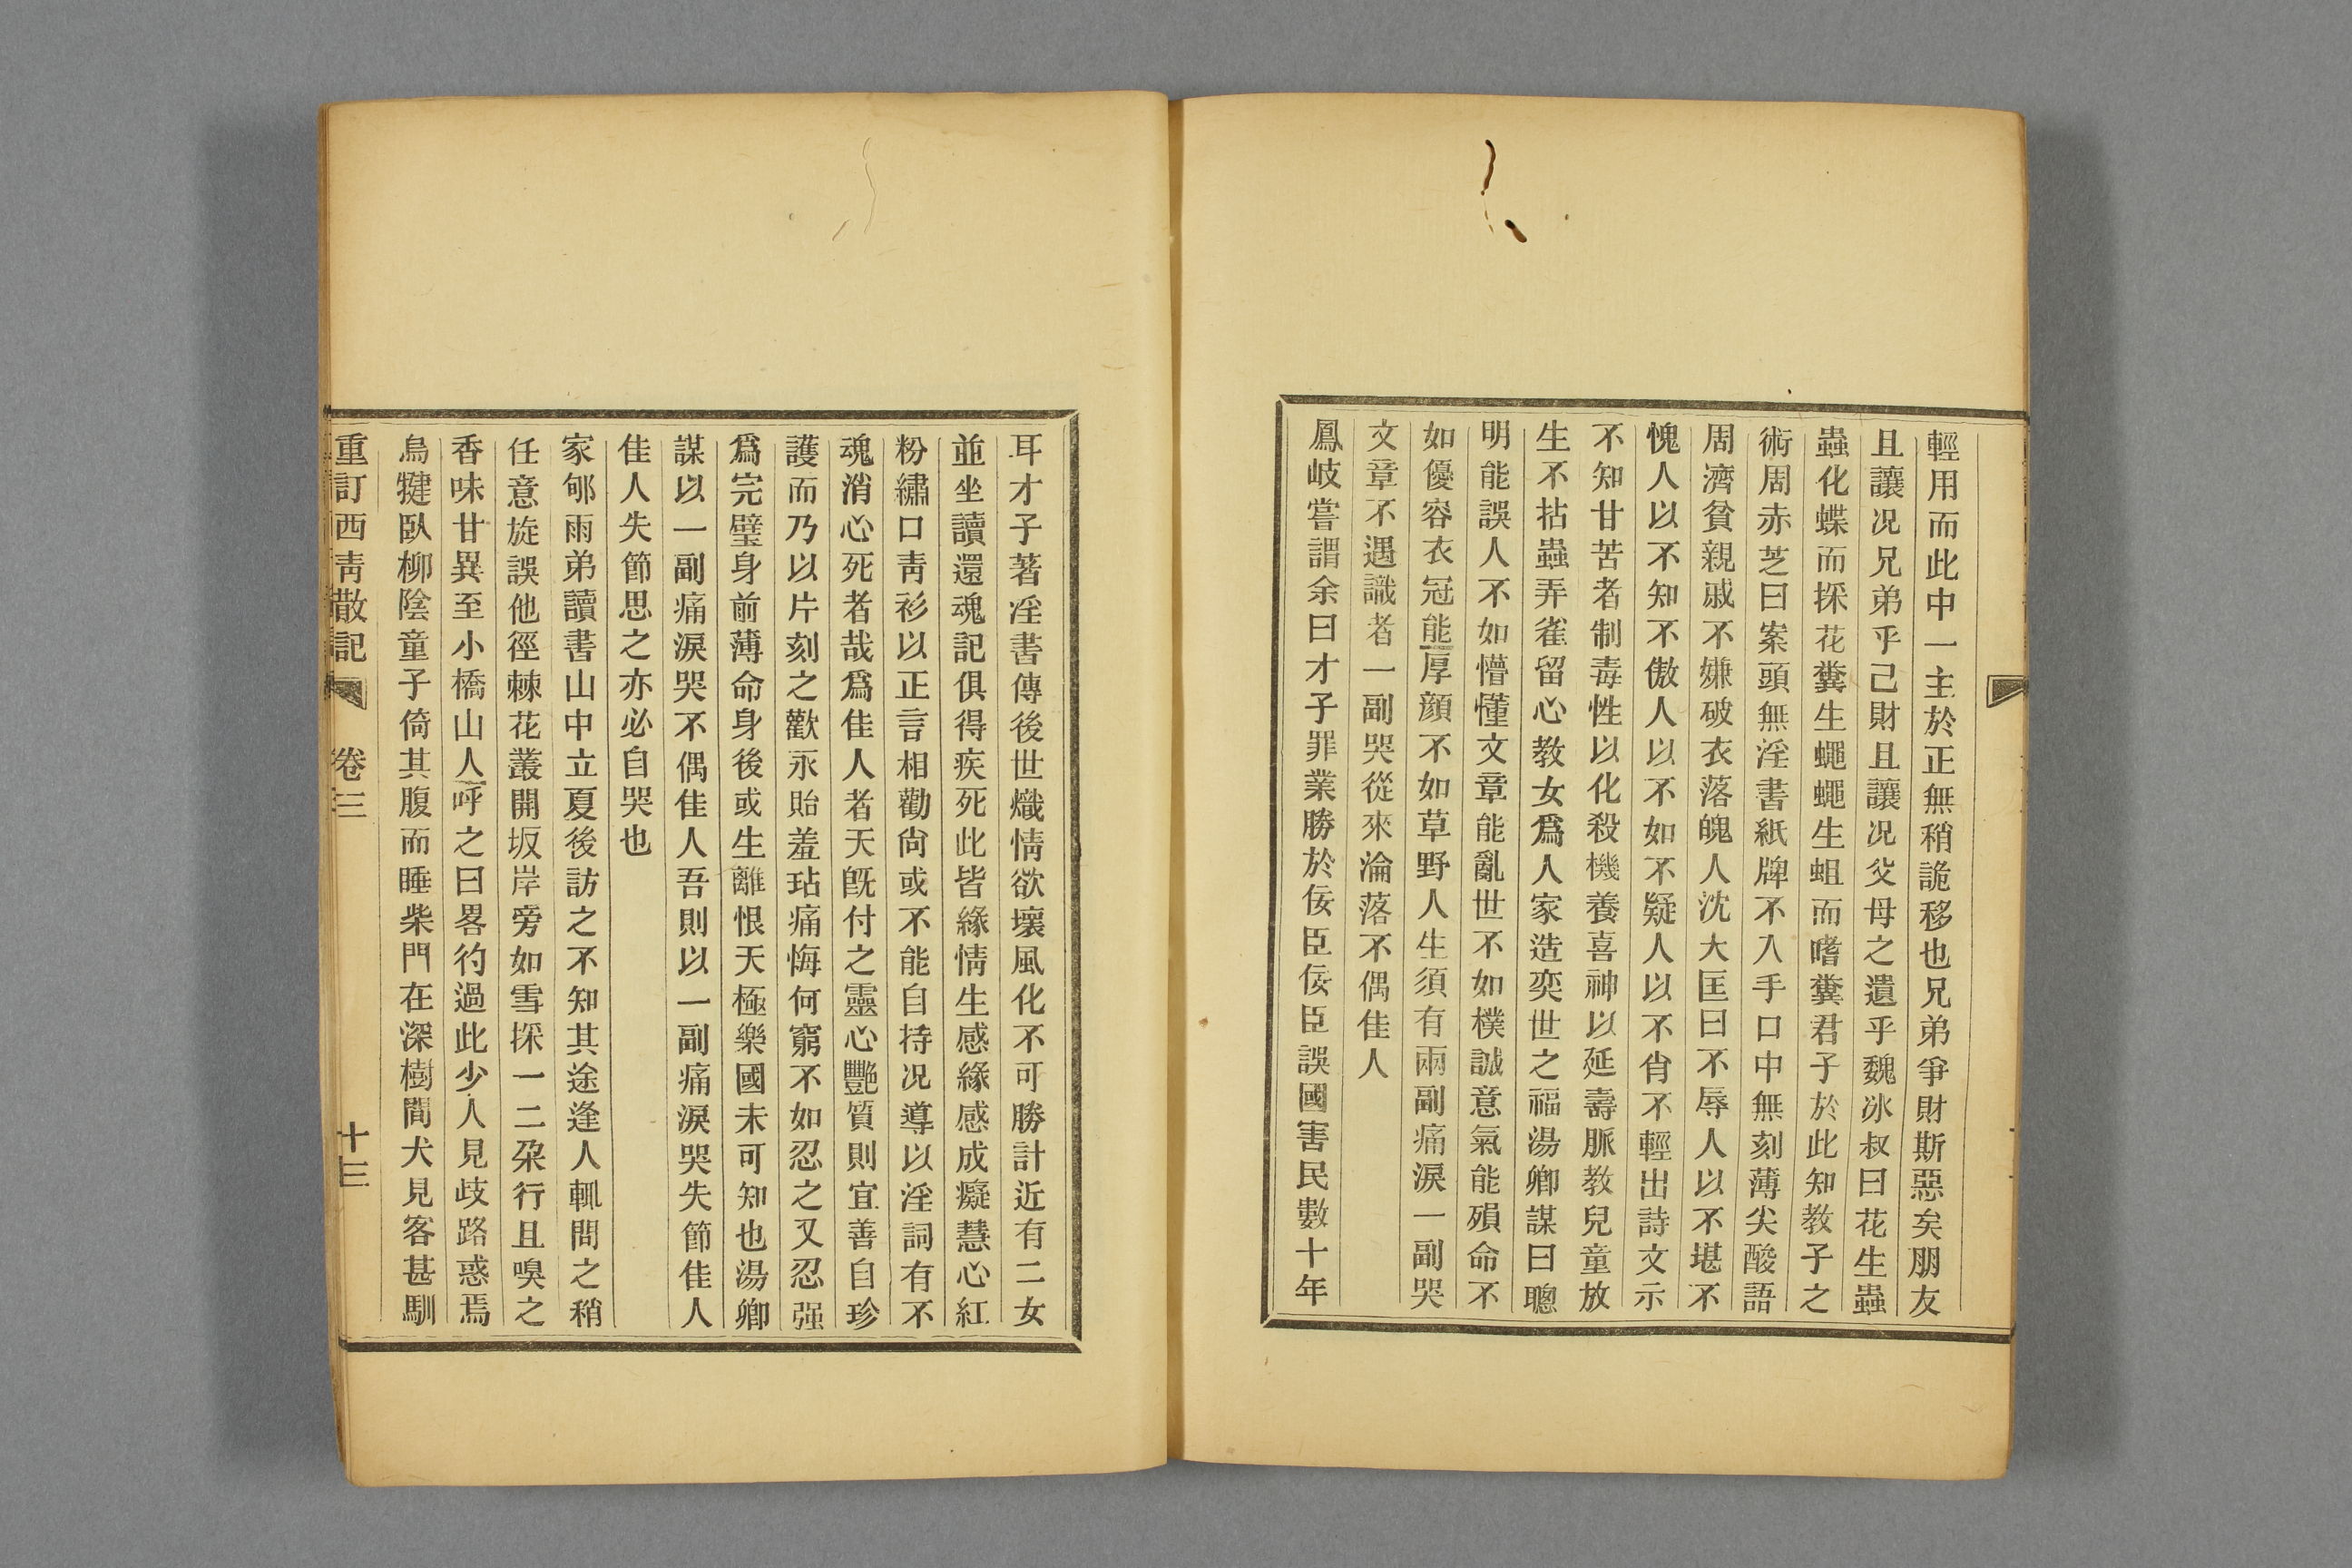 輕用而此中一主於正無稍詭移也兄弟爭財斯惡矣朋友
且讓况兄弟乎己財且讓况父母之遺乎魏冰叔曰花生蟲
蟲化蝶而採花糞生蠅蠅生蛆而嗜糞君子於此知教子之
術周赤芝曰案頭無淫書紙牌不入手口中無刻薄尖酸語
周濟貧親戚不嫌破衣落魄人沈大匡曰不辱人以不堪不
愧人以不知不傲人以不如不疑人以不肖不輕出詩文示
不知甘苦者制毒性以化殺機養喜神以延壽脈教兒童放
生不拈蟲弄雀留心教女爲人家造奕世之福湯卿謀曰聰
明能誤人不如懵懂文章能亂世不如樸誠意氣能殞命不
如優容衣冠能厚顏不如草野人生須有兩副痛淚一副哭
文章不遇識者一副哭從來淪落不偶佳人
鳳岐嘗謂余曰才子罪業勝於佞臣佞臣誤國害民數十年
耳才子著淫書傳後世熾情欲壞風化不可勝計近有二女
並坐讀還魂記俱得疾死此皆緣情生感緣感成癡慧心紅
粉繡口靑衫以正言相勸尙或不能自持况導以淫詞有不
魂消心死者哉爲佳人者天旣付之靈心艷質則宜善自珍
護而乃以片刻之歡永貽羞玷痛悔何窮不如忍之又忍强
爲完璧身前薄命身後或生離恨天極樂國未可知也湯卿
謀以一副痛淚哭不偶佳人吾則以一副痛淚哭失節佳人
佳人失節思之亦必自哭也
家邨雨弟讀書山中立夏後訪之不知其途逢人輒問之稍
任意旋誤他徑棘花叢開坂岸旁如雪採一二朶行且嗅之
香味甘異至小橋山人呼之曰畧彴過此少人見歧路惑焉
烏犍臥柳陰童子倚其腹而睡柴門在深樹間犬見客甚馴
重訂西靑散記 卷三 十三